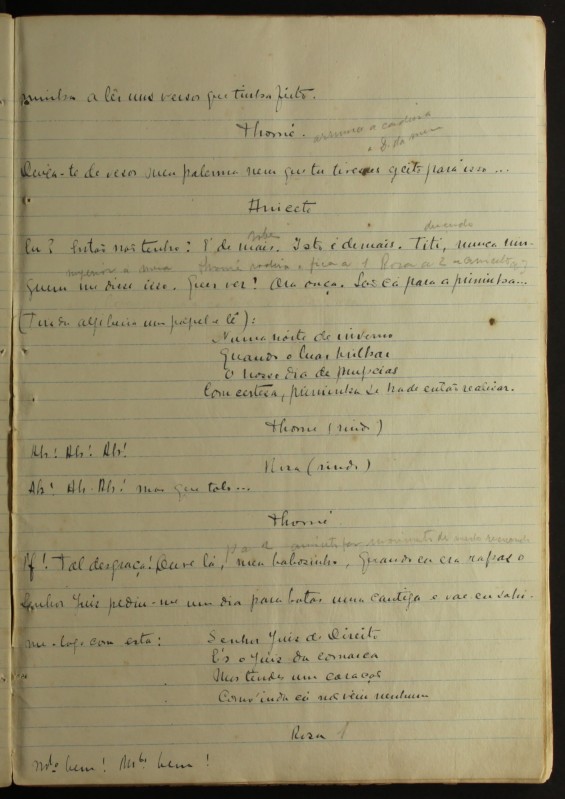 priminha a lêr uns versos que tinha feito.
Thomé.
arruma a cadeira
a D. da mesa
Deixa-te de versos meu palerma nem que tu tivesses geito para isso...
Aniceto
sobe
dansando
Eu? Então não tenho? É de mais. Isto é demais. Titi, nunca nin-
Thomé rodeia, fica a 1 Rosa a 2 Aniceto a 3
guem me disse isso. Quer ver? Ora ouça. Lá cá para a priminha...
(Tira da algibeira um papel e lê):
Numa noite de inverno
Quando o luar brilhar
O nosso dia de nupcias
Com certeza, priminha se hade então realizar.
Thomé (rindo)
Ah! Ah! Ah!
Rosa (rindo)
Ah! Ah. Ah! mas que tolo...
Thomé
If! Tal desgraça! Ouve lá, meu babozinho, Quando eu era rapaz o
Senhor Juiz pediu-me um dia para botar uma cantiga e vae eu sahi-
me logo com esta: Senhor Juiz de Direito
És o Juiz da comarca
Mas tendes um caraças
Com'inda cá não veiu nenhum
Rosa
Mto bem! Mto bem!